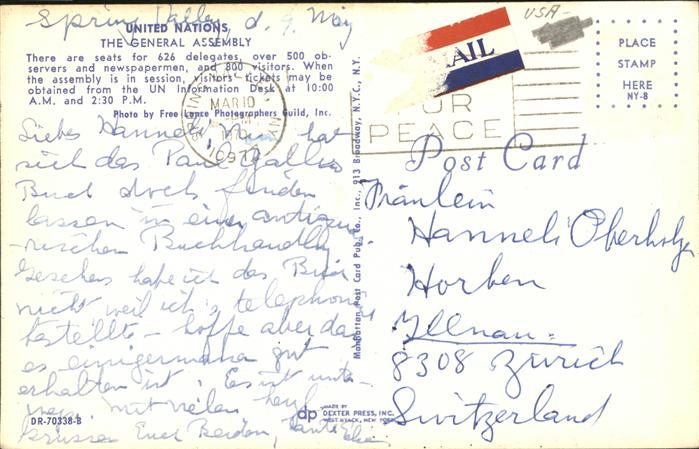 Spring Valley, d. 9. May
UNITED NATIONS
THE GENERAL ASSEMBLY
There are seats for 626 delegates, over 500 ob-
servers and newspapermen, and 800 visitors. When
the assembly is in session, visitors' tickets may be
obtained from the UN Information Desk at 10:00
A.M. and 2:30 P.M.
Photo by Free Lance Photographers Guild, Inc.
Liebes Hanneli Nun hat
sich das Paul Gallico
Buch doch finden
lassen in einer antiqua-
rischen Buchhandlg
Gesehen habe ich das Buch
nicht weil ich's telephonisch
bestellte - hoffe aber dass
es einigermassen gut
erhalten ist. Es ist unter-
wegs. Mit vielen herzl
Grüssen Euch Beiden,
DR-70338-B
dp
MADE BY
DEXTER PRESS, INC.
WEST NYACK, NEW YORK
Manhattan Post Card Pub. Co., Inc., 913 Broadway, N.Y.C., N.Y.
MAR 10
10977
AIL
USA
PEACE
PLACE
STAMP
HERE
NY-8
Post Card
Fräulein
Hanneli Oberholzer
Horben
Illnau
8308 Zürich
Switzerland